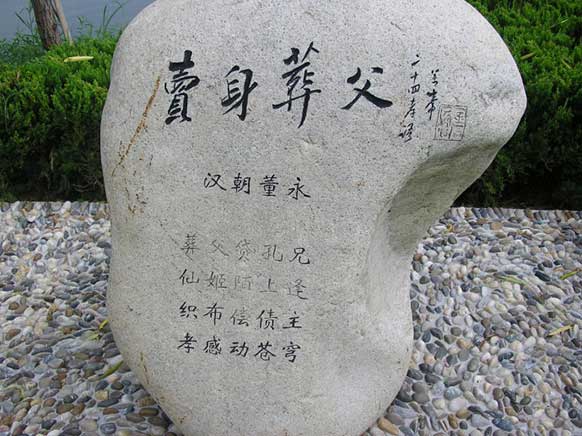 賣身葬父
二十四孝
汉朝董永
葬父贷孔兄
仙姬陌上逢
织布偿债主
孝感动苍穹